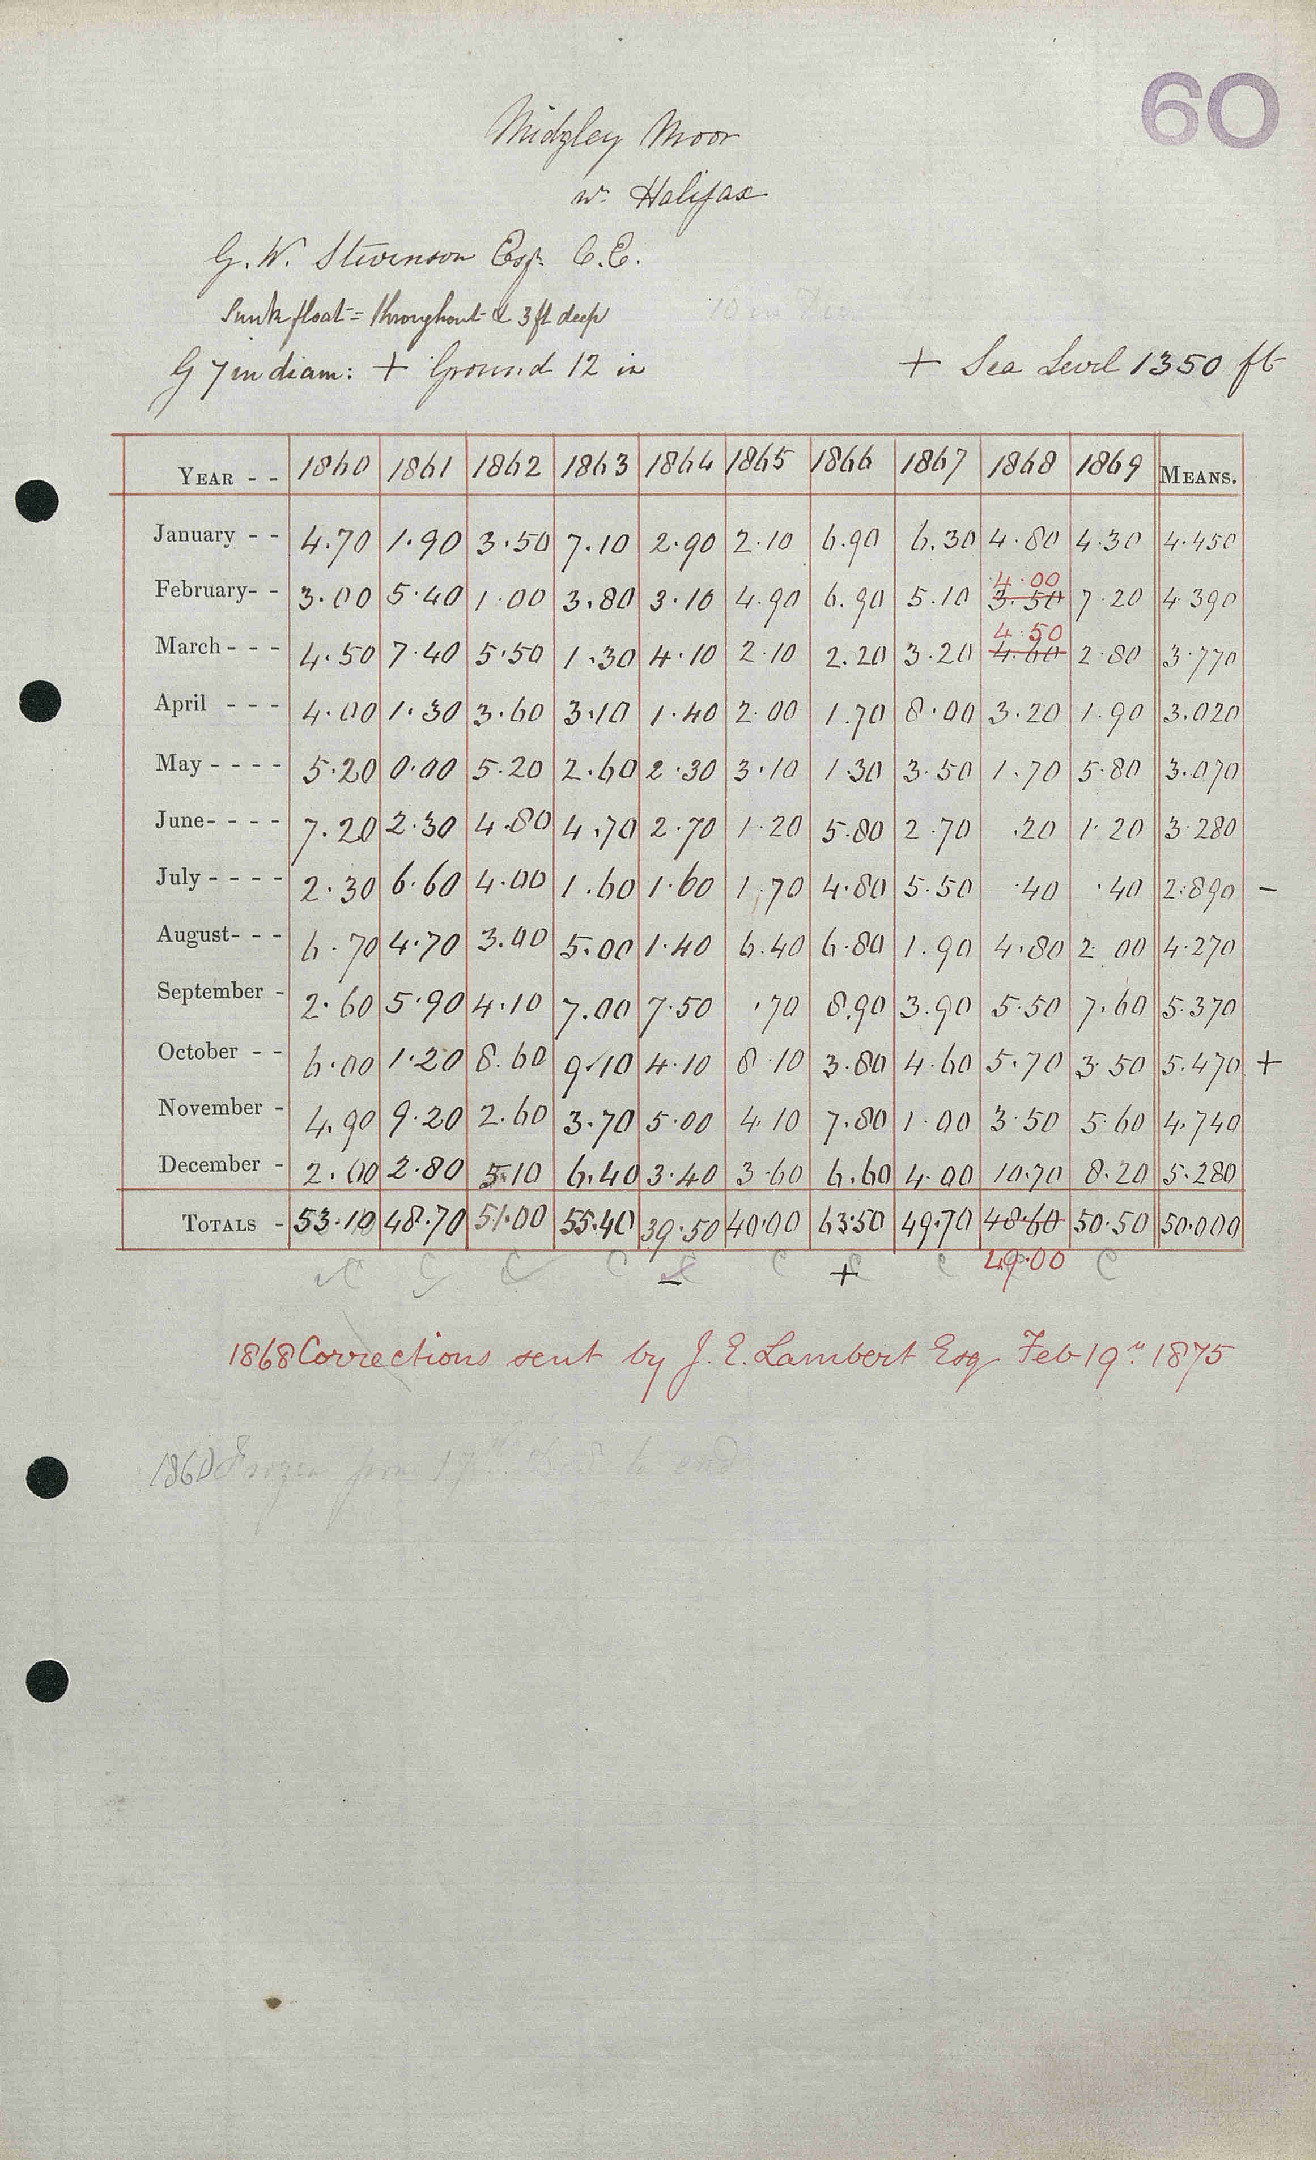 60
Midgley Moor
nr Halifax
G. W. Stevenson Esqr. C.E.
Sunk float = throughout & 3 ft deep
G 7 in diam: + Ground 12 in + Sea Level 1350 ft
YEAR - - 1860 1861 1862 1863 1864 1865 1866 1867 1868 1869 MEANS.
4.00
January - - 4.70 1.90 3.50 7.10 2.90 2.10 6.90 6.30 4.80 4.30 4.450
February- - 3.00 5.40 1.00 3.80 3.10 4.90 6.90 5.10 3.50 7.20 4.390
4.50
March - - - 4.50 7.40 5.50 1.30 4.10 2.10 2.20 3.20 4.60 2.80 3.770
April - - - 4.00 1.30 3.60 3.10 1.40 2.00 1.70 8.00 3.20 1.90 3.020
May - - - - 5.20 0.00 5.20 2.60 2.30 3.10 1.30 3.50 1.70 5.80 3.070
June- - - - 7.20 2.30 4.80 4.70 2.70 1.20 5.80 2.70 .20 1.20 3.280
July - - - - 2.30 6.60 4.00 1.60 1.60 1.70 4.80 5.50 .40 .40 2.890 –
August- - - 6.70 4.70 3.00 5.00 1.40 6.40 6.80 1.90 4.80 2.00 4.270
September - 2.60 5.90 4.10 7.00 7.50 .70 8.90 3.90 5.50 7.60 5.370
October - - 6.00 1.20 8.60 9.10 4.10 8.10 3.80 4.60 5.70 3.50 5.470 +
November - 4.90 9.20 2.60 3.70 5.00 4.10 7.80 1.00 3.50 5.60 4.740
December - 2.00 2.80 5.10 6.40 3.40 3.60 6.60 4.00 10.70 8.20 5.280
TOTALS - 53.10 48.70 51.00 55.40 39.50 40.00 63.50 49.70 48.60 50.50 50.000
C C C C – C + C 49.00 C
1868 Corrections sent by J. E. Lambert Esq Feb 19th 1875
1860 Frozen from 17th to end